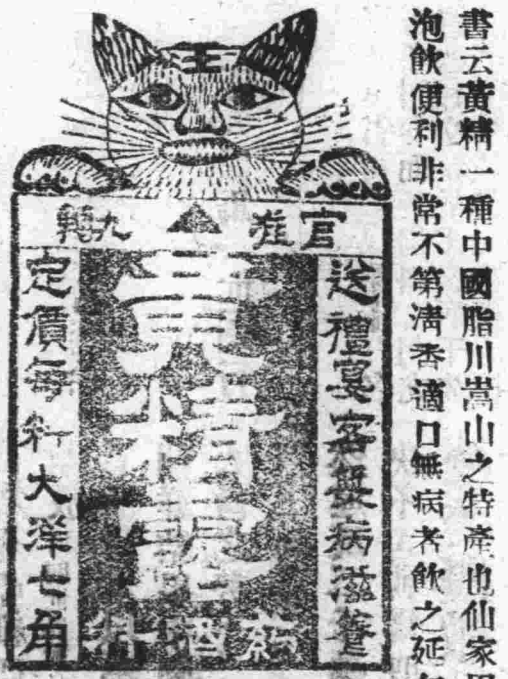 書云黃精一種中國脂川嵩山之特產也仙家
泡飲便利非常不第清香適口無病者飲之延
官准 九轉
送禮宴客無病滋養
黃精露
葯酒料
定價每料大洋七角